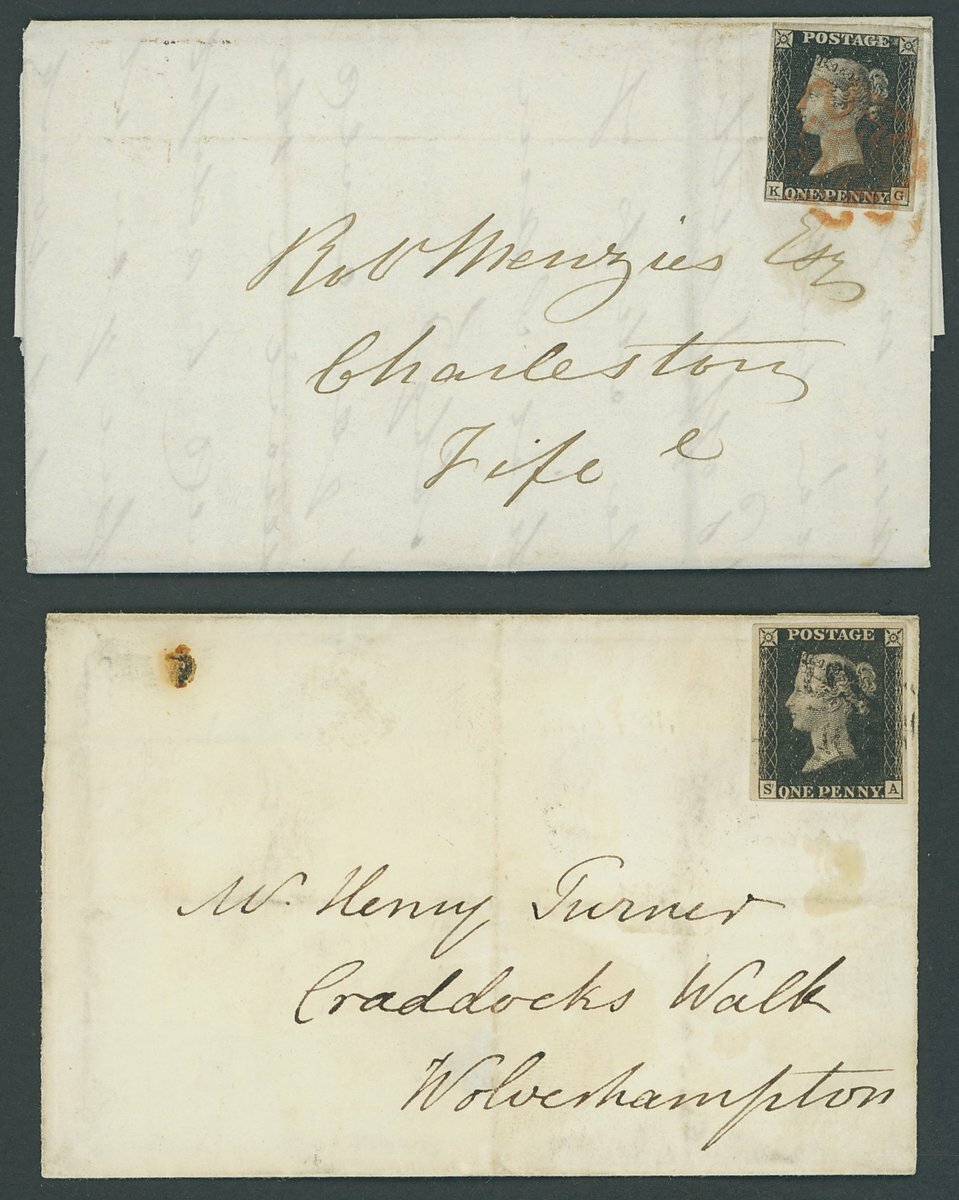 POSTAGE
K ONE PENNY G
Robt Menzies Esq
Charleston
Fife
POSTAGE
S ONE PENNY A
Mr. Henry Turner
Craddocks Walk
Wolverhampton